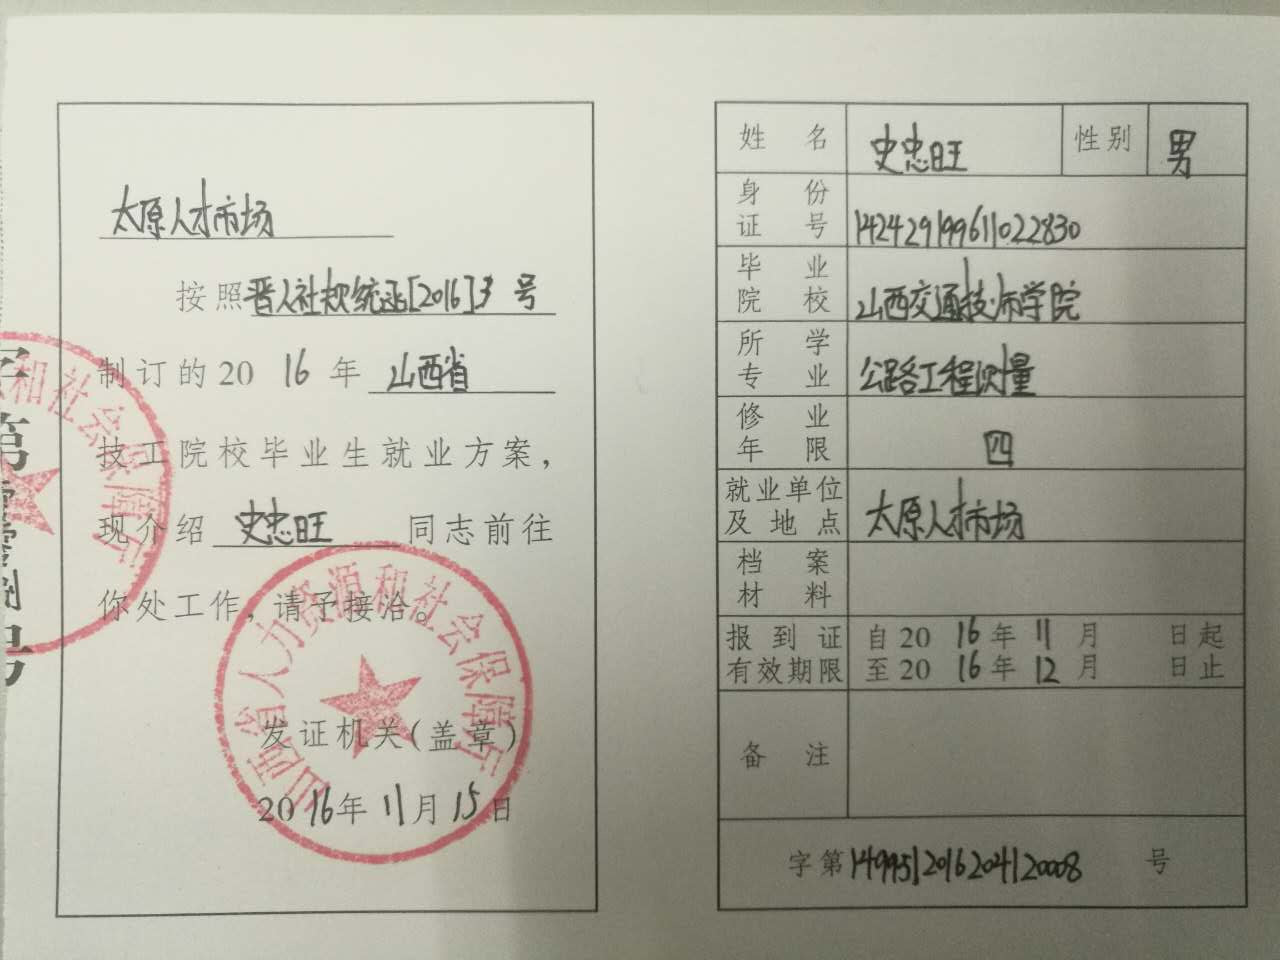 太原人才市场
按照晋人社规统函[2016]3号
制订的2016年山西省
技工院校毕业生就业方案，
现介绍史忠旺同志前往
你处工作，请予接洽。
发证机关(盖章)
2016年11月15日
山西省人力资源和社会保障厅
和社会保障厅
姓名 史忠旺 性别 男
身份证号 142429199611022830
毕业院校 山西交通技师学院
所学专业 公路工程测量
修业年限 四
就业单位及地点 太原人才市场
档案材料
报到证有效期限 自2016年11月 日起
至2016年12月 日止
备注
字第1499512016204120008号